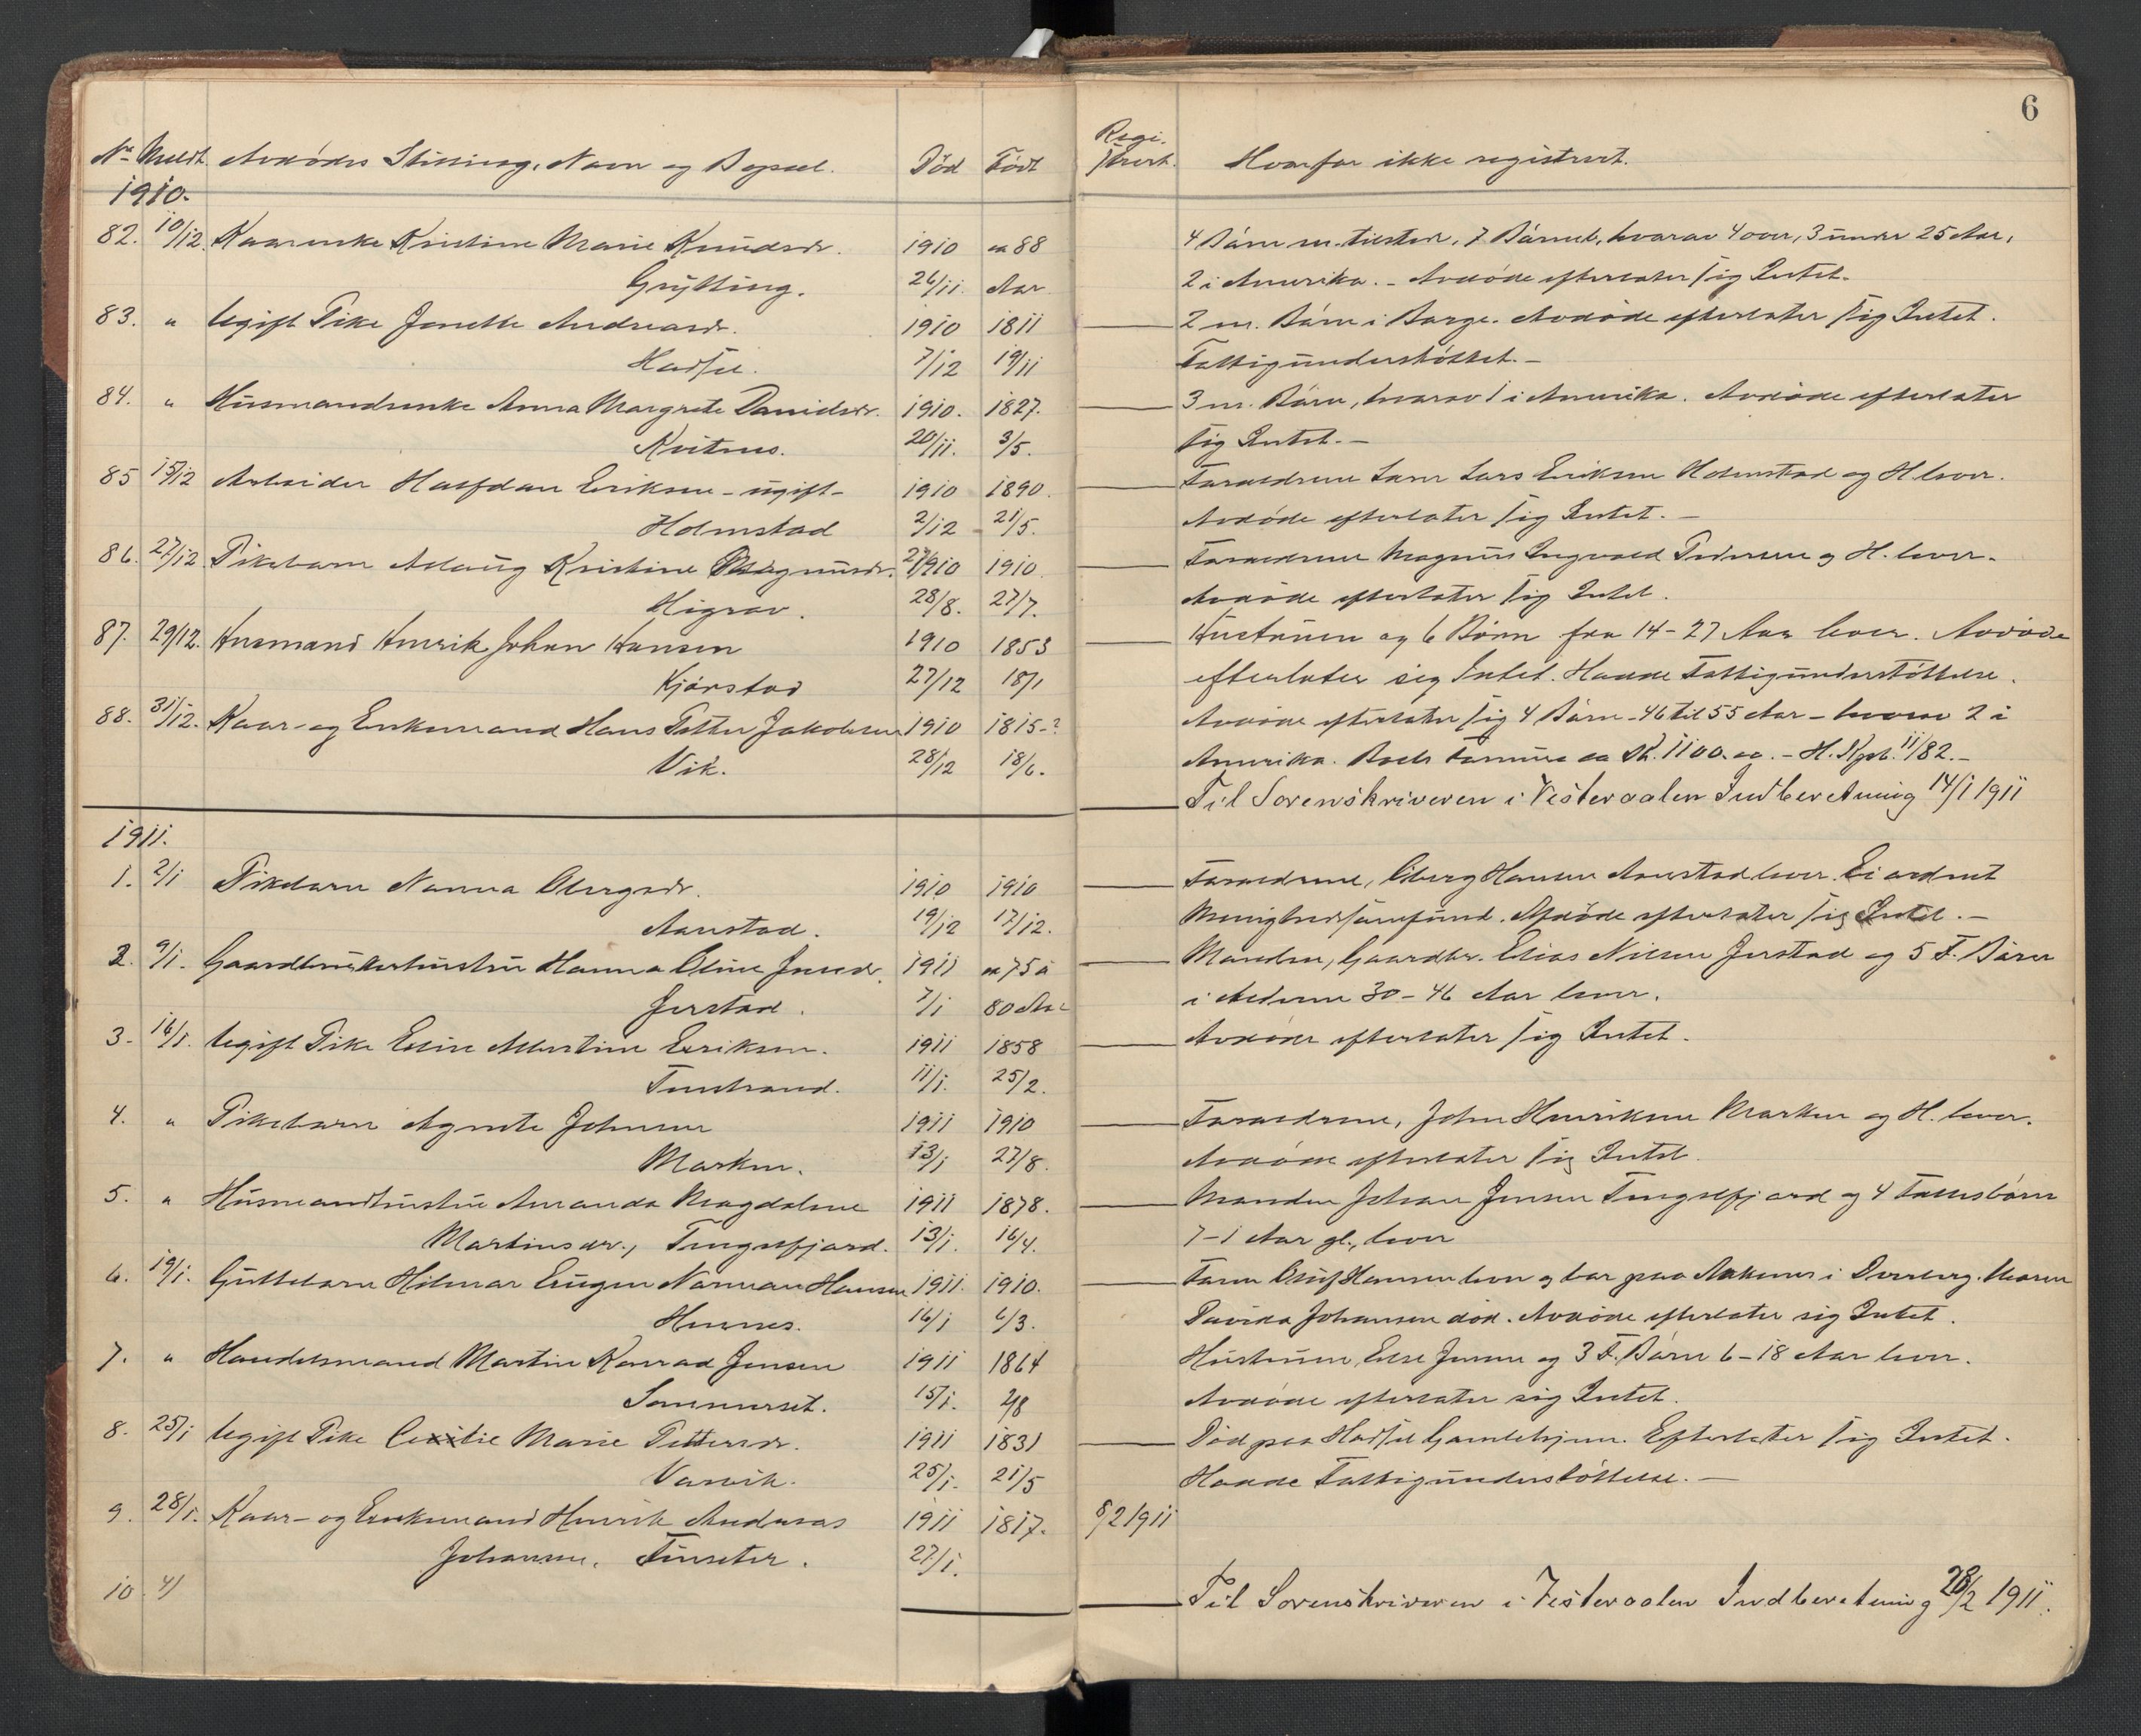 6
Nr. Meldt. Avdødes Stilling, Navn og Bopæl. Død Født Regi-
strert. Hvorfor ikke registrert.
1910.
82. 10/12. Kaarenke Kristine Marie Knudsdr. 1910 ca 88 4 Børn m. tilsted, 7 Børneb., hvorav 4 over, 3 under 25 Aar,
Grytting. 26/11. Aar 2 i Amerika. - Avdøde efterlater sig Intet.
83. " Ugift Pike Jonette Andreasdr. 1910 1811 2 m. Børn i Borge. Avdøde efterlater sig Intet.
Hadsel. 7/12 19/11 Fattigunderstøttet. -
84. " Husmandsenke Anna Margrete Danidsdr. 1910. 1827. 3 m. Børn, hvorav 1 i Amerika. Avdøde efterlater
Kvitnes. 20/11. 3/5. sig Intet. -
85 15/12 Arbeider Halfdan Eriksen - ugift - 1910 1890. Forældrene Lars Eriksen Holmstad og H. lever.
Holmstad 2/12 21/5. Avdøde efterlater sig Intet. -
86. 27/12 Pikebarn Aslaug Kristine Magnusdr. 1910 1910. Forældrene Magnus Ingvald Pedersen og H. lever.
Higrav. 28/8. 27/7. Avdøde efterlater sig Intet.
87. 29/12. Husmand Henrik Johan Hansen 1910 1853 Hustruen og 6 Børn fra 14-27 Aar lever. Avdøde
Kjørstad 27/12 18/1 efterlater sig Intet. Havde Fattigunderstøttelse.
88. 31/12. Kaar- og Enkemand Hans Petter Jakobsen 1910 1815-? Avdøde efterlater sig 4 Børn - 46 til 55 Aar - hvorav 2 i
Vik. 28/12 18/6. Amerika. Boets Formue ca Kr. 1100.00. - 11/82. -
Til Sorenskriveren i Vesteraalen Indberetning 14/1 1911
1911.
1. 2/1 Pikebarn Nanna Olbergsdr. 1910 1910 Forældrene, Olberg Hansen Aanstad lever. Ei ordnet
Aanstad. 19/12 17/12. Menighedssamfund. Afdøde efterlater sig Intet. -
2. 9/1. Gaardbrukerhustru Hanna Oline Jensdr. 1911 ca 75 à Manden, Gaardbr. Elias Nilsen Jerstad og 5 F. Børn
Jerstad. 7/1 80 Aar i Alderen 30-46 Aar lever.
3. 16/1. Ugift Pike Eline Albertine Eriksen. 1911 1858 Avdøde efterlater sig Intet.
Tunstrand. 11/1. 25/2.
4. " Pikebarn Agnete Johnsen 1911 1910 Forældrene, John Henriksen Marken og H. lever.
Marken. 13/1 27/8. Avdøde efterlater sig Intet.
5. " Husmandhustru Amanda Magdalene 1911 1878. Manden Johan Jensen Tengelfjord og 4 Fællesbørn
Martinsdr., Tengelfjord. 13/1. 16/4. 7-1 Aar gl., lever
6. 19/1. Guttebarn Hilmar Eugen Norman Hansen 1911. 1910. Faren Oluf Hansen lever og bor paa Aaknes i Dverberg. Moren
Hennes. 16/1 6/3. Davida Johansen død. Avdøde efterlater sig Intet.
7. " Handelsmand Martin Konrad Jensen 1911 1864 Hustruen, Else Jensen og 3 F. Børn 6-18 Aar lever.
Sommerset. 15/1. 2/8 Avdøde efterlater sig Intet.
8. 25/1 Ugift Pike Cecilie Marie Pettersdr. 1911 1831 Død paa Hadsel Gamlehjem. Efterlater sig Intet.
Varvik. 25/1. 21/5 Havde Fattigunderstøttelse. -
9. 28/1. Kaar- og Enkemand Henrik Andreas 1911 1817. 8/2 1911
Johansen, Finseter. 27/1.
10. 4/
Til Sorenskriveren i Vesteraalen Indberetning 28/2 1911.